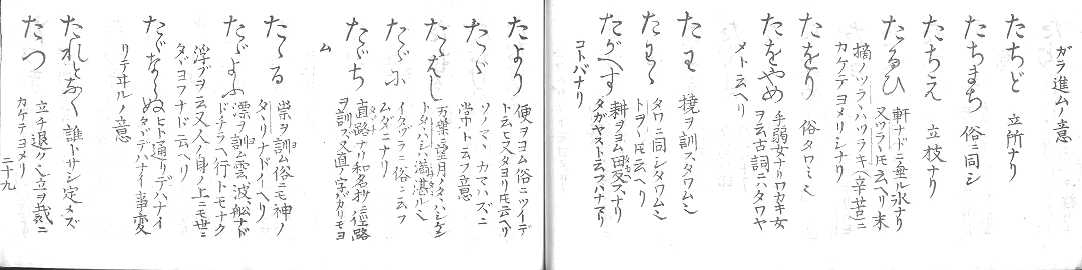 ガラ進ムノ意
たちど 立所ナリ
たちまち 俗ニ同シ
たちえ 立枝ナリ
たるひ 軒ナドニ垂ル氷ナリ
又ツラヽ氏云ヘリ末
摘ノツラヽハツラキ(辛苦)ニ
カケテヨメリシナリ
たをり 俗タワミ
たをやめ 手弱女ナリワカキ女
ヲ云古詞ニハタワヤ
メト云ヘリ
たわ 撓ヲ訓スタワムミ
たわゝ タワニ同シタワムミ
トヲヽ氏云ヘリ
たがへす 耕ヲヨム田返スナリ
タガヤスト云フハナマリ
コトバナリ
たより 便ヲヨム俗ニツイデ
ト云ヒ又タヨリ氏云ヘリ
たゞ ソノマヽカマハズニ
常ノト云フ意
たゝはし 万葉ニ望月ノタヽハシケン
トタヽハシハ満湛ルミ
たゞに イタヅラニ俗ニ云フ
ムダニナリ
たゞち 直路ナリ和名抄ニ径路
ヲ訓ス又直ノ字ハカリモヨ
ム
たゝる 祟ヲ訓ム俗ニモ神ノ
タヽリナドイヘリ
たゞよふ 漂ヲ訓ム雲、波、船ナド
ドチラヘ行トモナク
浮ブヲ云又人ノ身ノ上ニモ世ニ
タヾヨフナド云ヘリ
たゞならぬ ヒト通リデハナイ
タヾデハナイ事変
リテヰルノ意
たれとなく 誰トサシ定メズ
たつ 立チ退クミ立ヲ裁ニ
カケテヨメリ
二十九